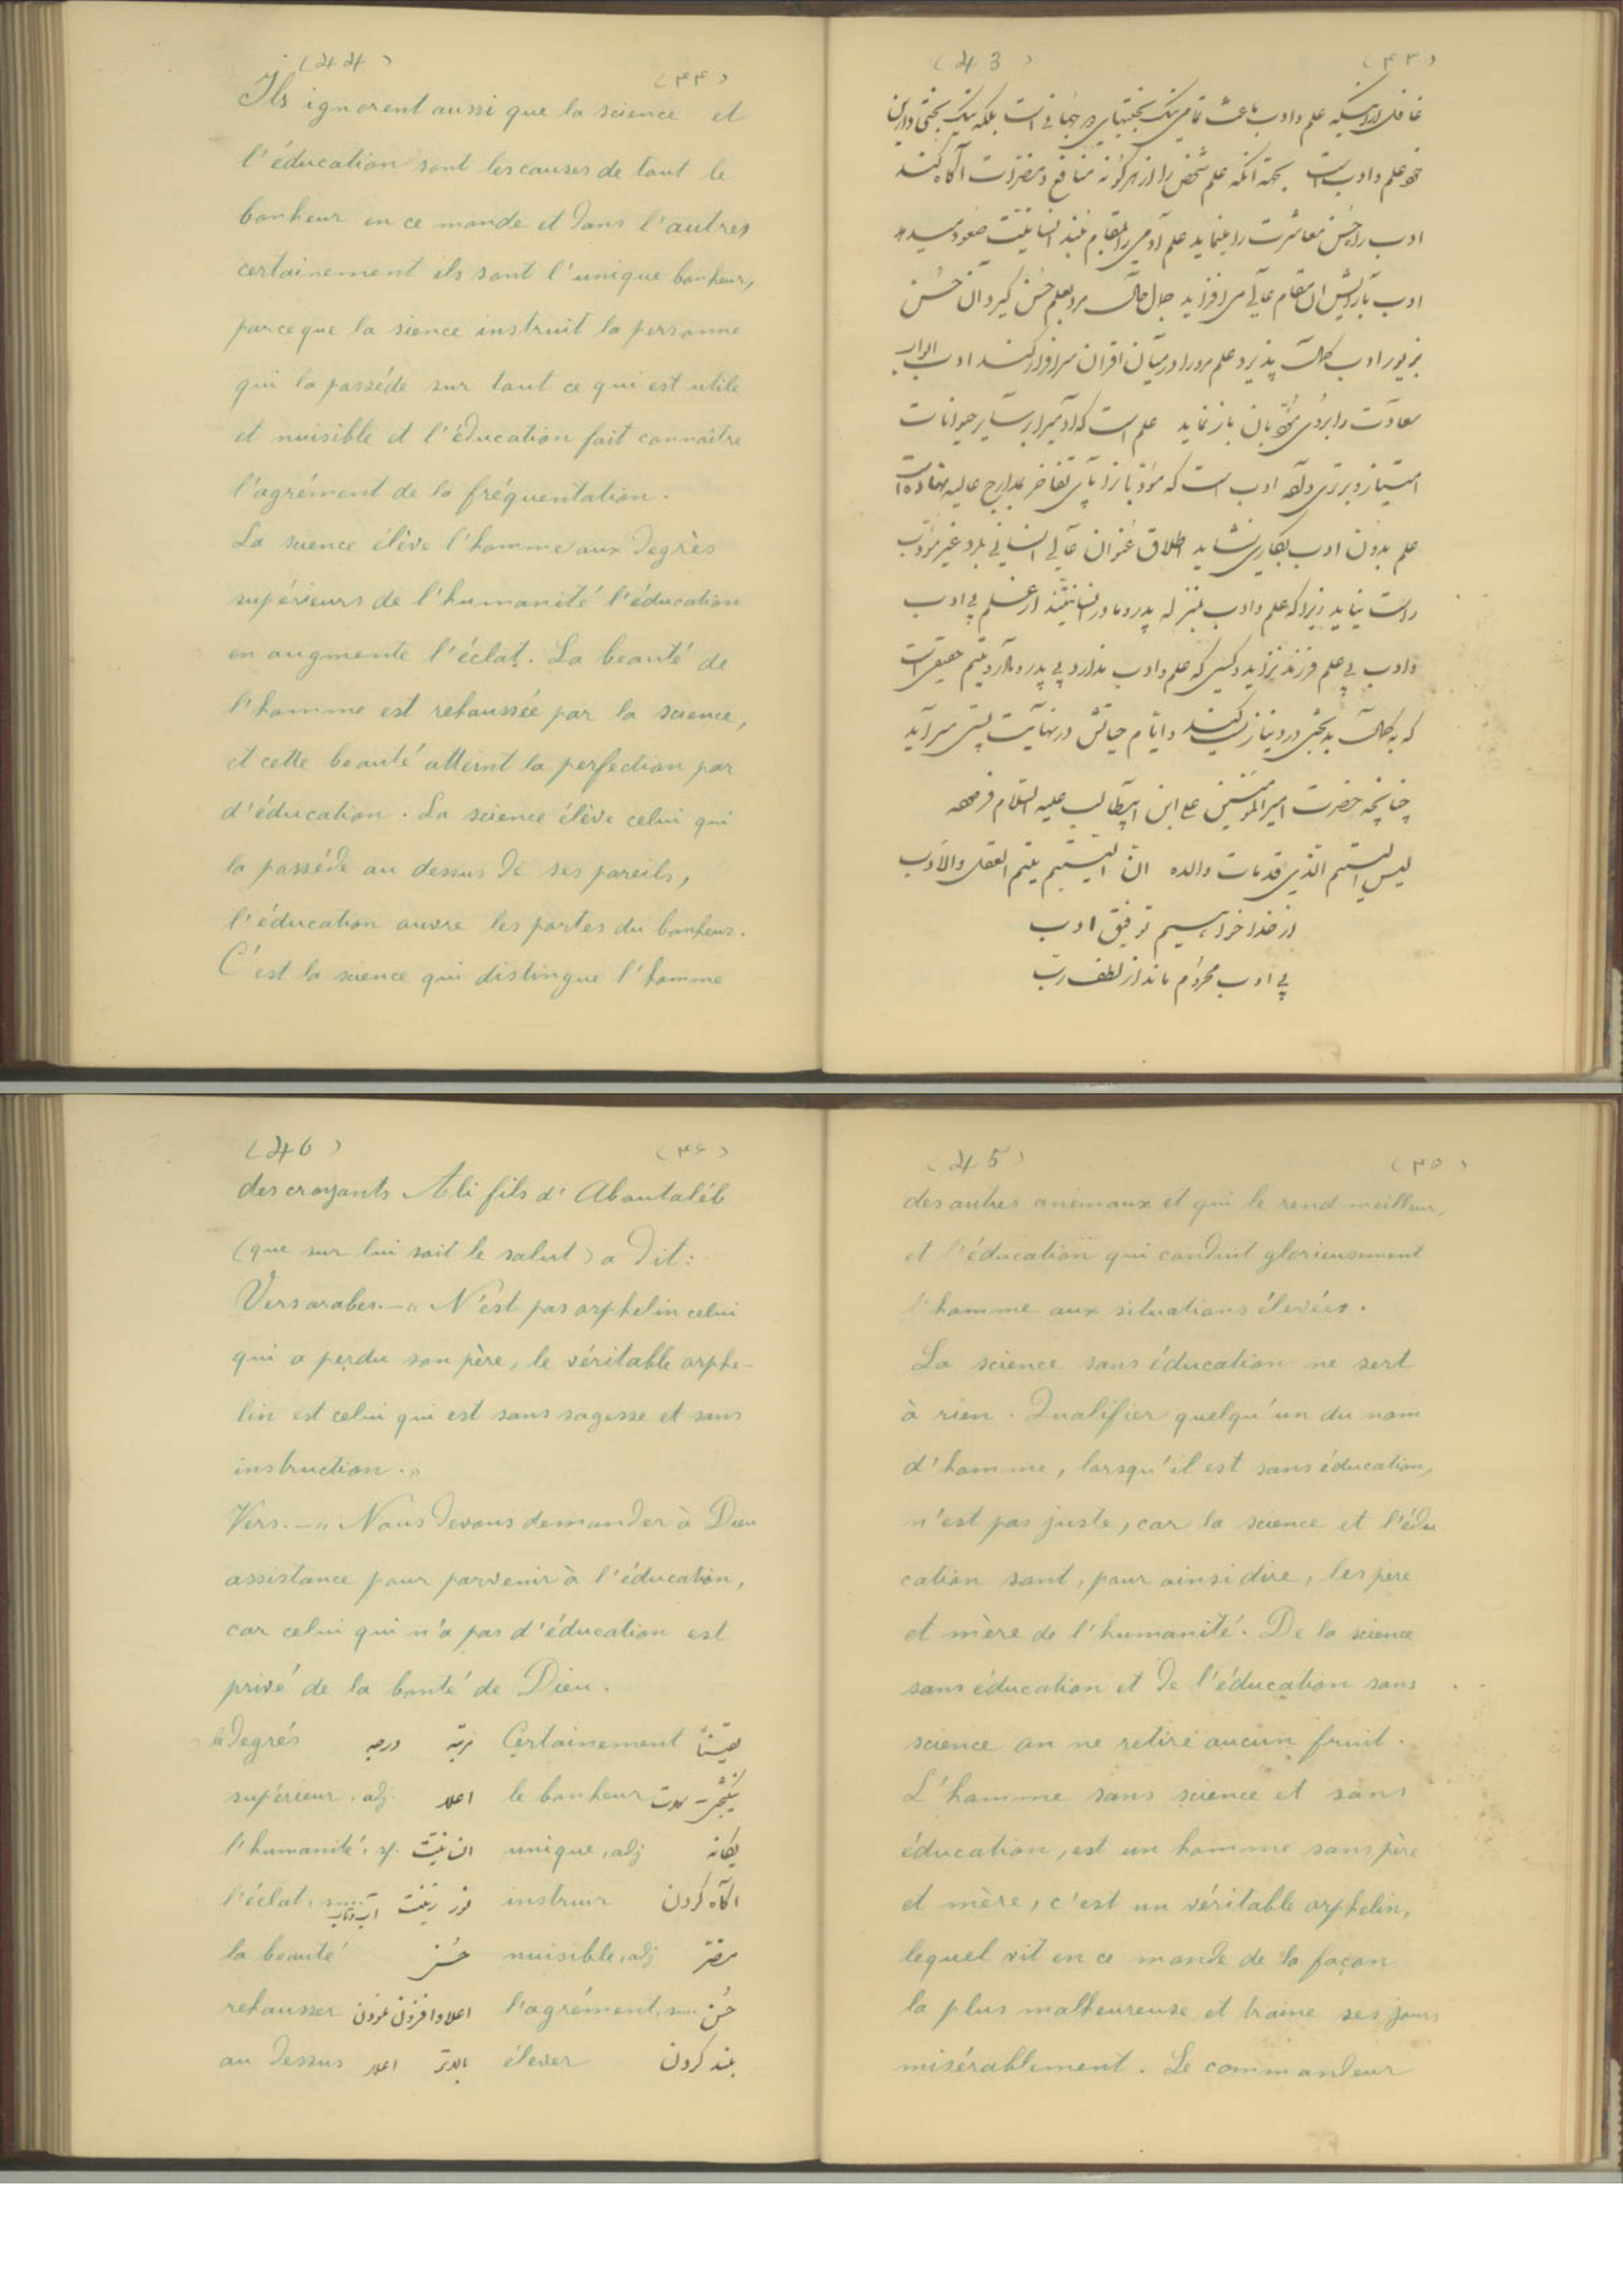 (43) (۴۳)
غافل از اینکه علم و ادب باعث تمامی نیک بختیهای در جهانی است بلکه نیک بختی دارین
خود علم و ادب است بجهة آنکه علم شخص را از هر گونه منافع و مضرات آگاه کند
ادب راه حسن معاشرت را بنماید علم آدمی را بمقام بلند انسانیت صعود میدهد
ادب بآرایش آن مقام عالی می افزاید جمال مرد بعلم حسن گیرد آن حسن
بزیور ادب کمال پذیرد علم مرد را در میان اقران سرافراز کند ادب ابواب
سعادت را بروی مؤدبان باز نماید علم است که آدمیرا بر سایر حیوانات
امتیاز و برتری داده ادب است که مؤدبانرا بپای تفاخر بمدارج عالیه نهاده است
علم بدون ادب بکاری نشاید اطلاق عنوان عالی انسانی بمرد غیر مؤدب
راست نیاید زیرا که علم و ادب بمنزله پدر و مادر انسانیتند از علم بی ادب
و ادب بی علم فرزند نزاید و کسی که علم و ادب ندارد بی پدر و مادر و یتیم حقیقی است
که به کمال بدبختی در دنیا زیست کند و ایام حیاتش در نهایت پستی سر آید
چنانچه حضرت امیرالمؤمنین علی ابن ابیطالب علیه السلام فرموده
لیس الیتیم الذی قد مات والده ان الیتیم یتیم العقل والادب
از خدا خواهیم توفیق ادب
بی ادب محروم ماند از لطف رب
(44) (۴۴)
Ils ignorent aussi que la science et
l'éducation sont les causes de tout le
bonheur en ce monde et dans l'autres
certainement ils sont l'unique bonheur,
parceque la sience instruit la personne
qui la posséde sur tout ce qui est utile
et nuisible et l'éducation fait connaître
l'agrément de la fréquentation.
La science élève l'homme aux degrès
supérieurs de l'humanité l'éducation
en augmente l'éclat. La beauté de
l'homme est rehaussée par la science,
et cette beauté atteint la perfection par
d'éducation. La science élève celui qui
la posséde au dessus de ses pareils,
l'éducation ouvre les portes du bonheur.
C'est la science qui distingue l'homme
(45) (۴۵)
des autres animaux et qui le rend meilleur,
et l'éducation qui conduit glorieusement
l'homme aux situations élevées.
La science sans éducation ne sert
à rien. Qualifier quelqu'un du nom
d'homme, lorsqu'il est sans éducation,
n'est pas juste, car la science et l'édu
cation sont, pour ainsi dire, les père
et mère de l'humanité. De la science
sans éducation et de l'éducation sans
science on ne retire aucun fruit.
L'homme sans science et sans
éducation, est un homme sans père
et mère, c'est un véritable orphelin,
lequel vit en ce monde de la façon
la plus malheureuse et traine ses jours
misérablement. Le commandeur
(46) (۴۶)
des croyants Ali fils d'Aboutaléb
(que sur lui soit le salut) a dit:
Vers arabes.—« N'est pas orphelin celui
qui a perdu son père, le véritable orphe-
lin est celui qui est sans sagesse et sans
instruction.»
Vers.—« Nous devons demander à Dieu
assistance pour parvenir à l'éducation,
car celui qui n'a pas d'éducation est
privé de la bonté de Dieu.
le degrés درجه مرتبه Certainement یقیناً
supérieur, adj. اعلا le bonheur نیکبختی سعادت
l'humanité, sf. انسانیت unique, adj یگانه
l'éclat, sm. آب و تاب زینت نور instruir آگاه کردن
la beauté حسن nuisible, adj مضر
rehausser اعلا و افزون نمودن l'agrément, sm. حسن
au dessus اعلا بالاتر élever بلند کردن